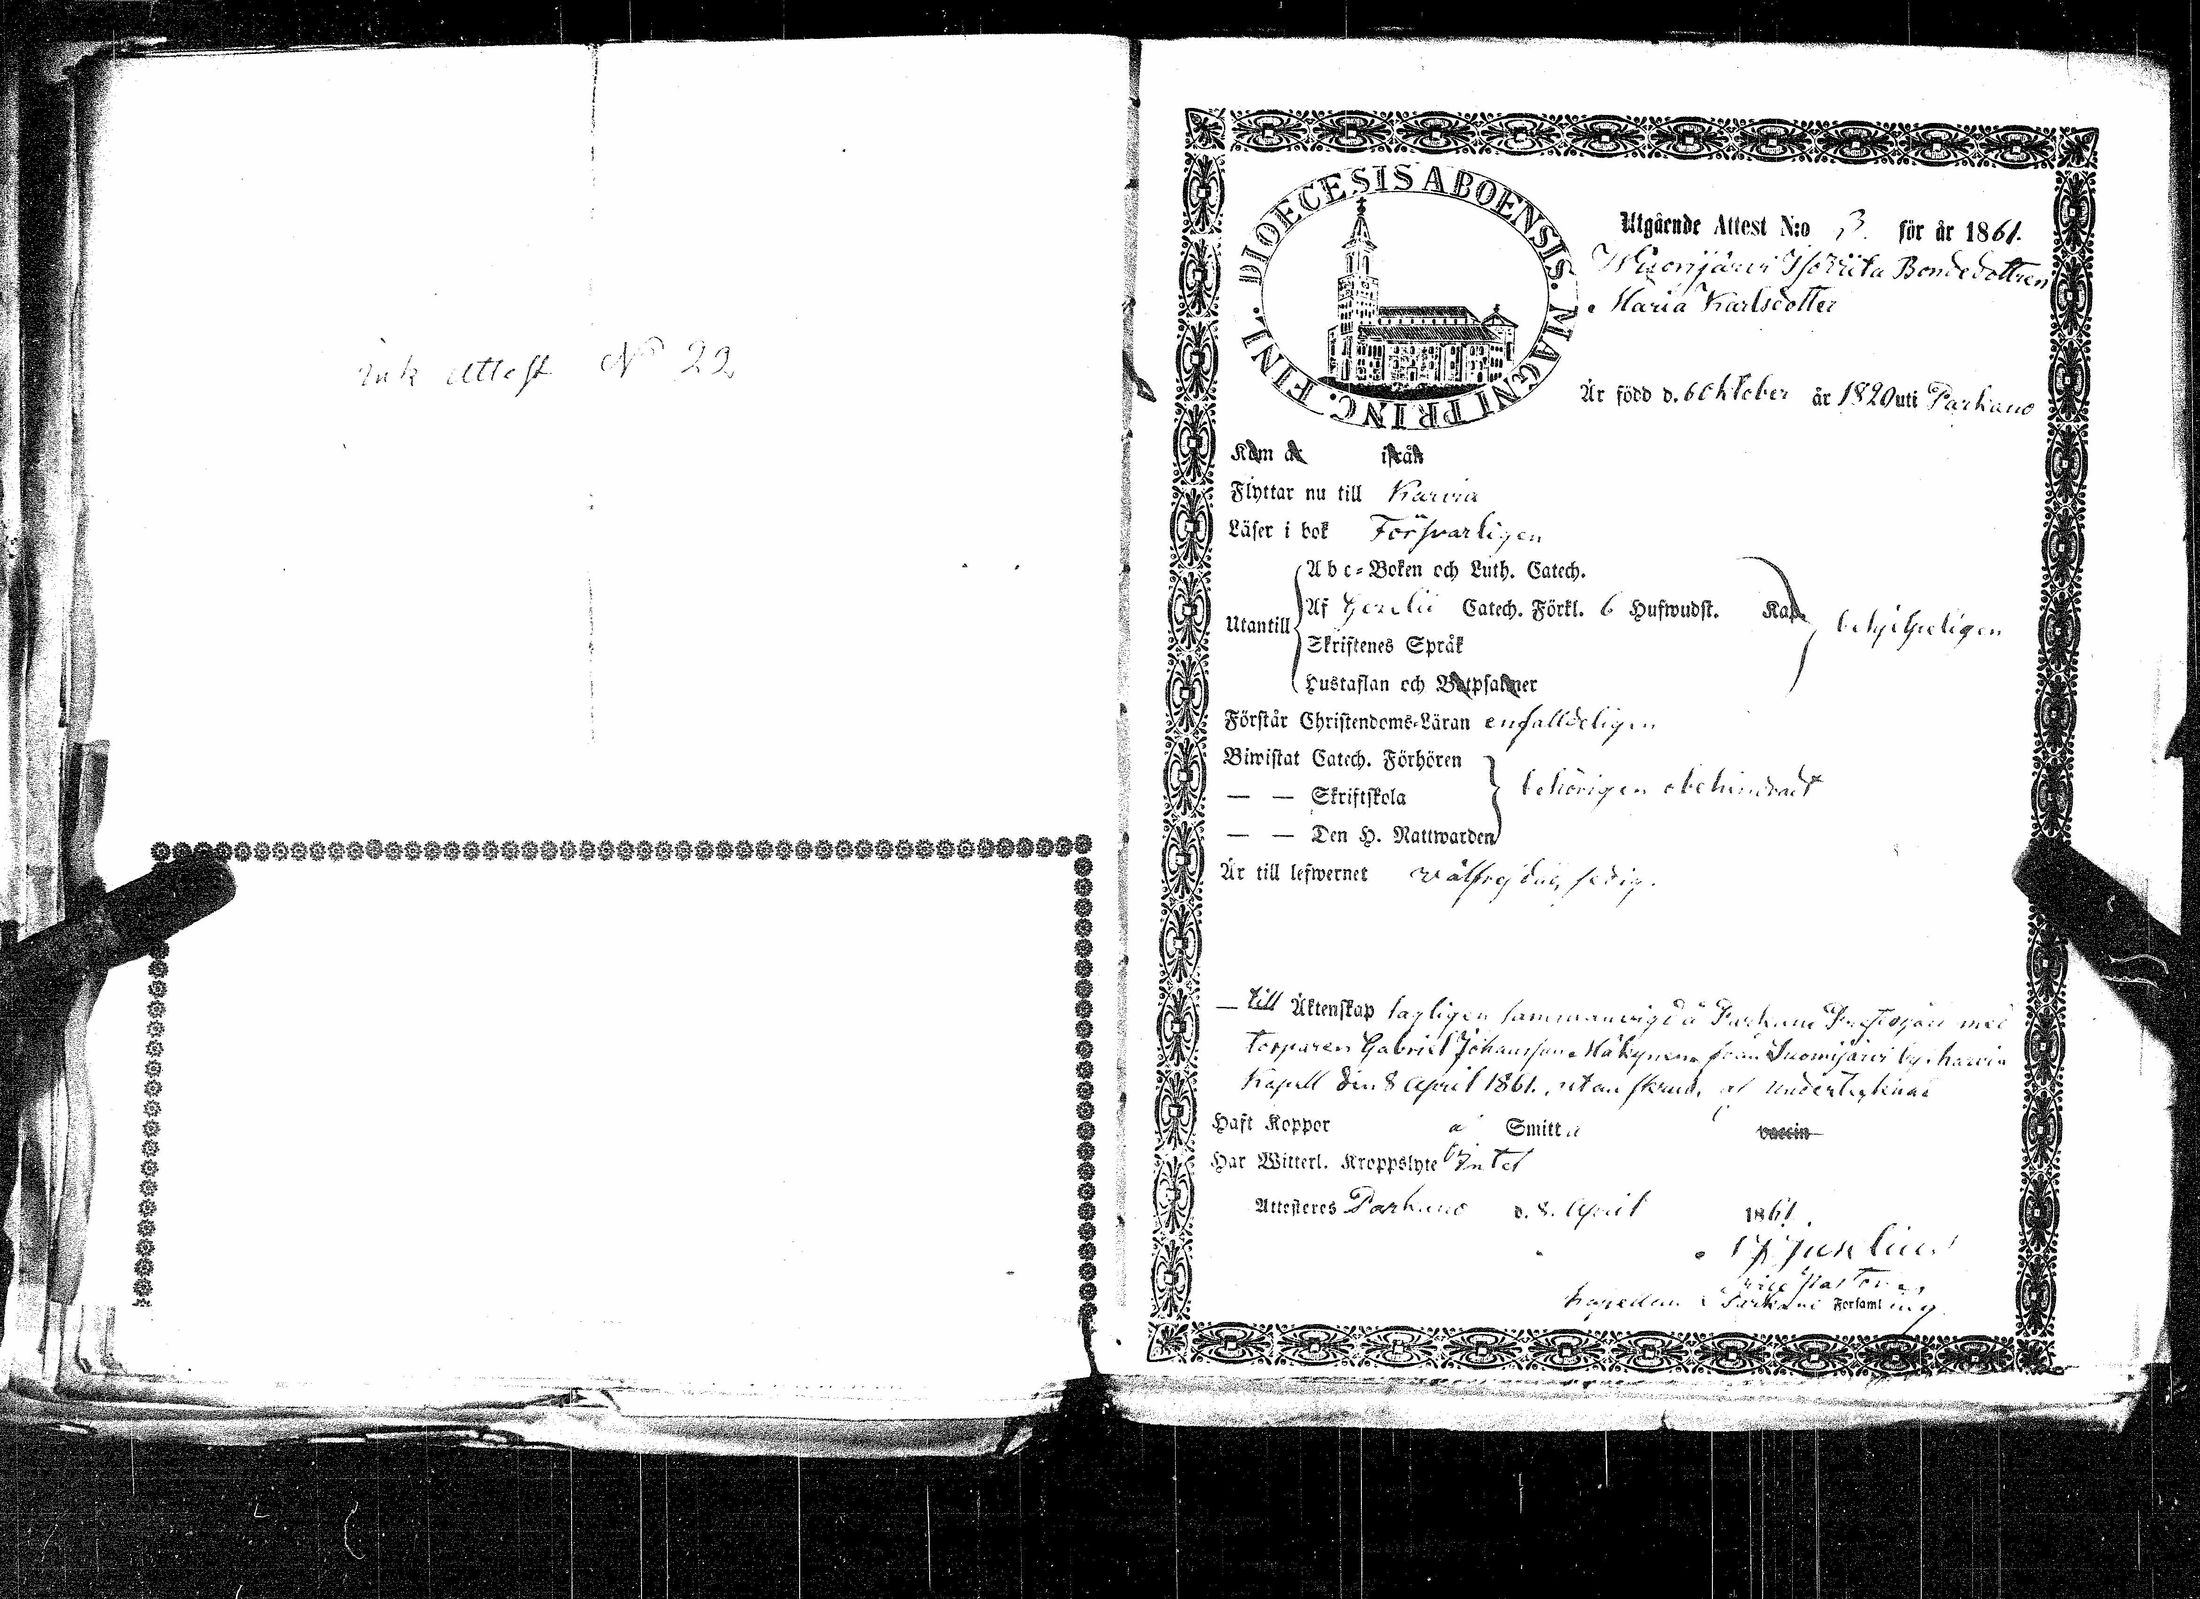 Ink Attest No 22
DIOECESIS ABOENSIS. MAGNI PRINC. FINL.
Utgående Attest N:o 3. för år 1861.
Bondedottren
Maria Karlsdotter
Är född d. 6 Oktober år 1820 uti Parkano
Kom år ifrån
Flyttar nu till Karvia
Läser i bok Försvarligen
Utantill
Abc-Boken och Luth. Catech.
Af Gezelii Catech. Förkl. 6 Hufwudst. Kap. behjelpeligen
Skriftenes Språk
Hustaflan och Botpsalmer
Förstår Christendoms-Läran enfalldeligen
Biwistat Catech. Förhören
— — Skriftskola behörigen obehindradt
— — Den H. Nattwarden
Är till lefwernet välfrejdad, ledig.
— till Äktenskap lagligen sammanvigd å Parkano Prestgård med
torparen Gabriel Johansson från Suomijärvi by i Karvia
Kapell den 8 April 1861, utan skrud, af undertecknad
Haft Koppor Smitt vaccin
Har Witterl. Kroppslyte Intet
Attesteres Parkano d. 8. April 1861.
Vice Pastor
Kapellan i Parkano Församling